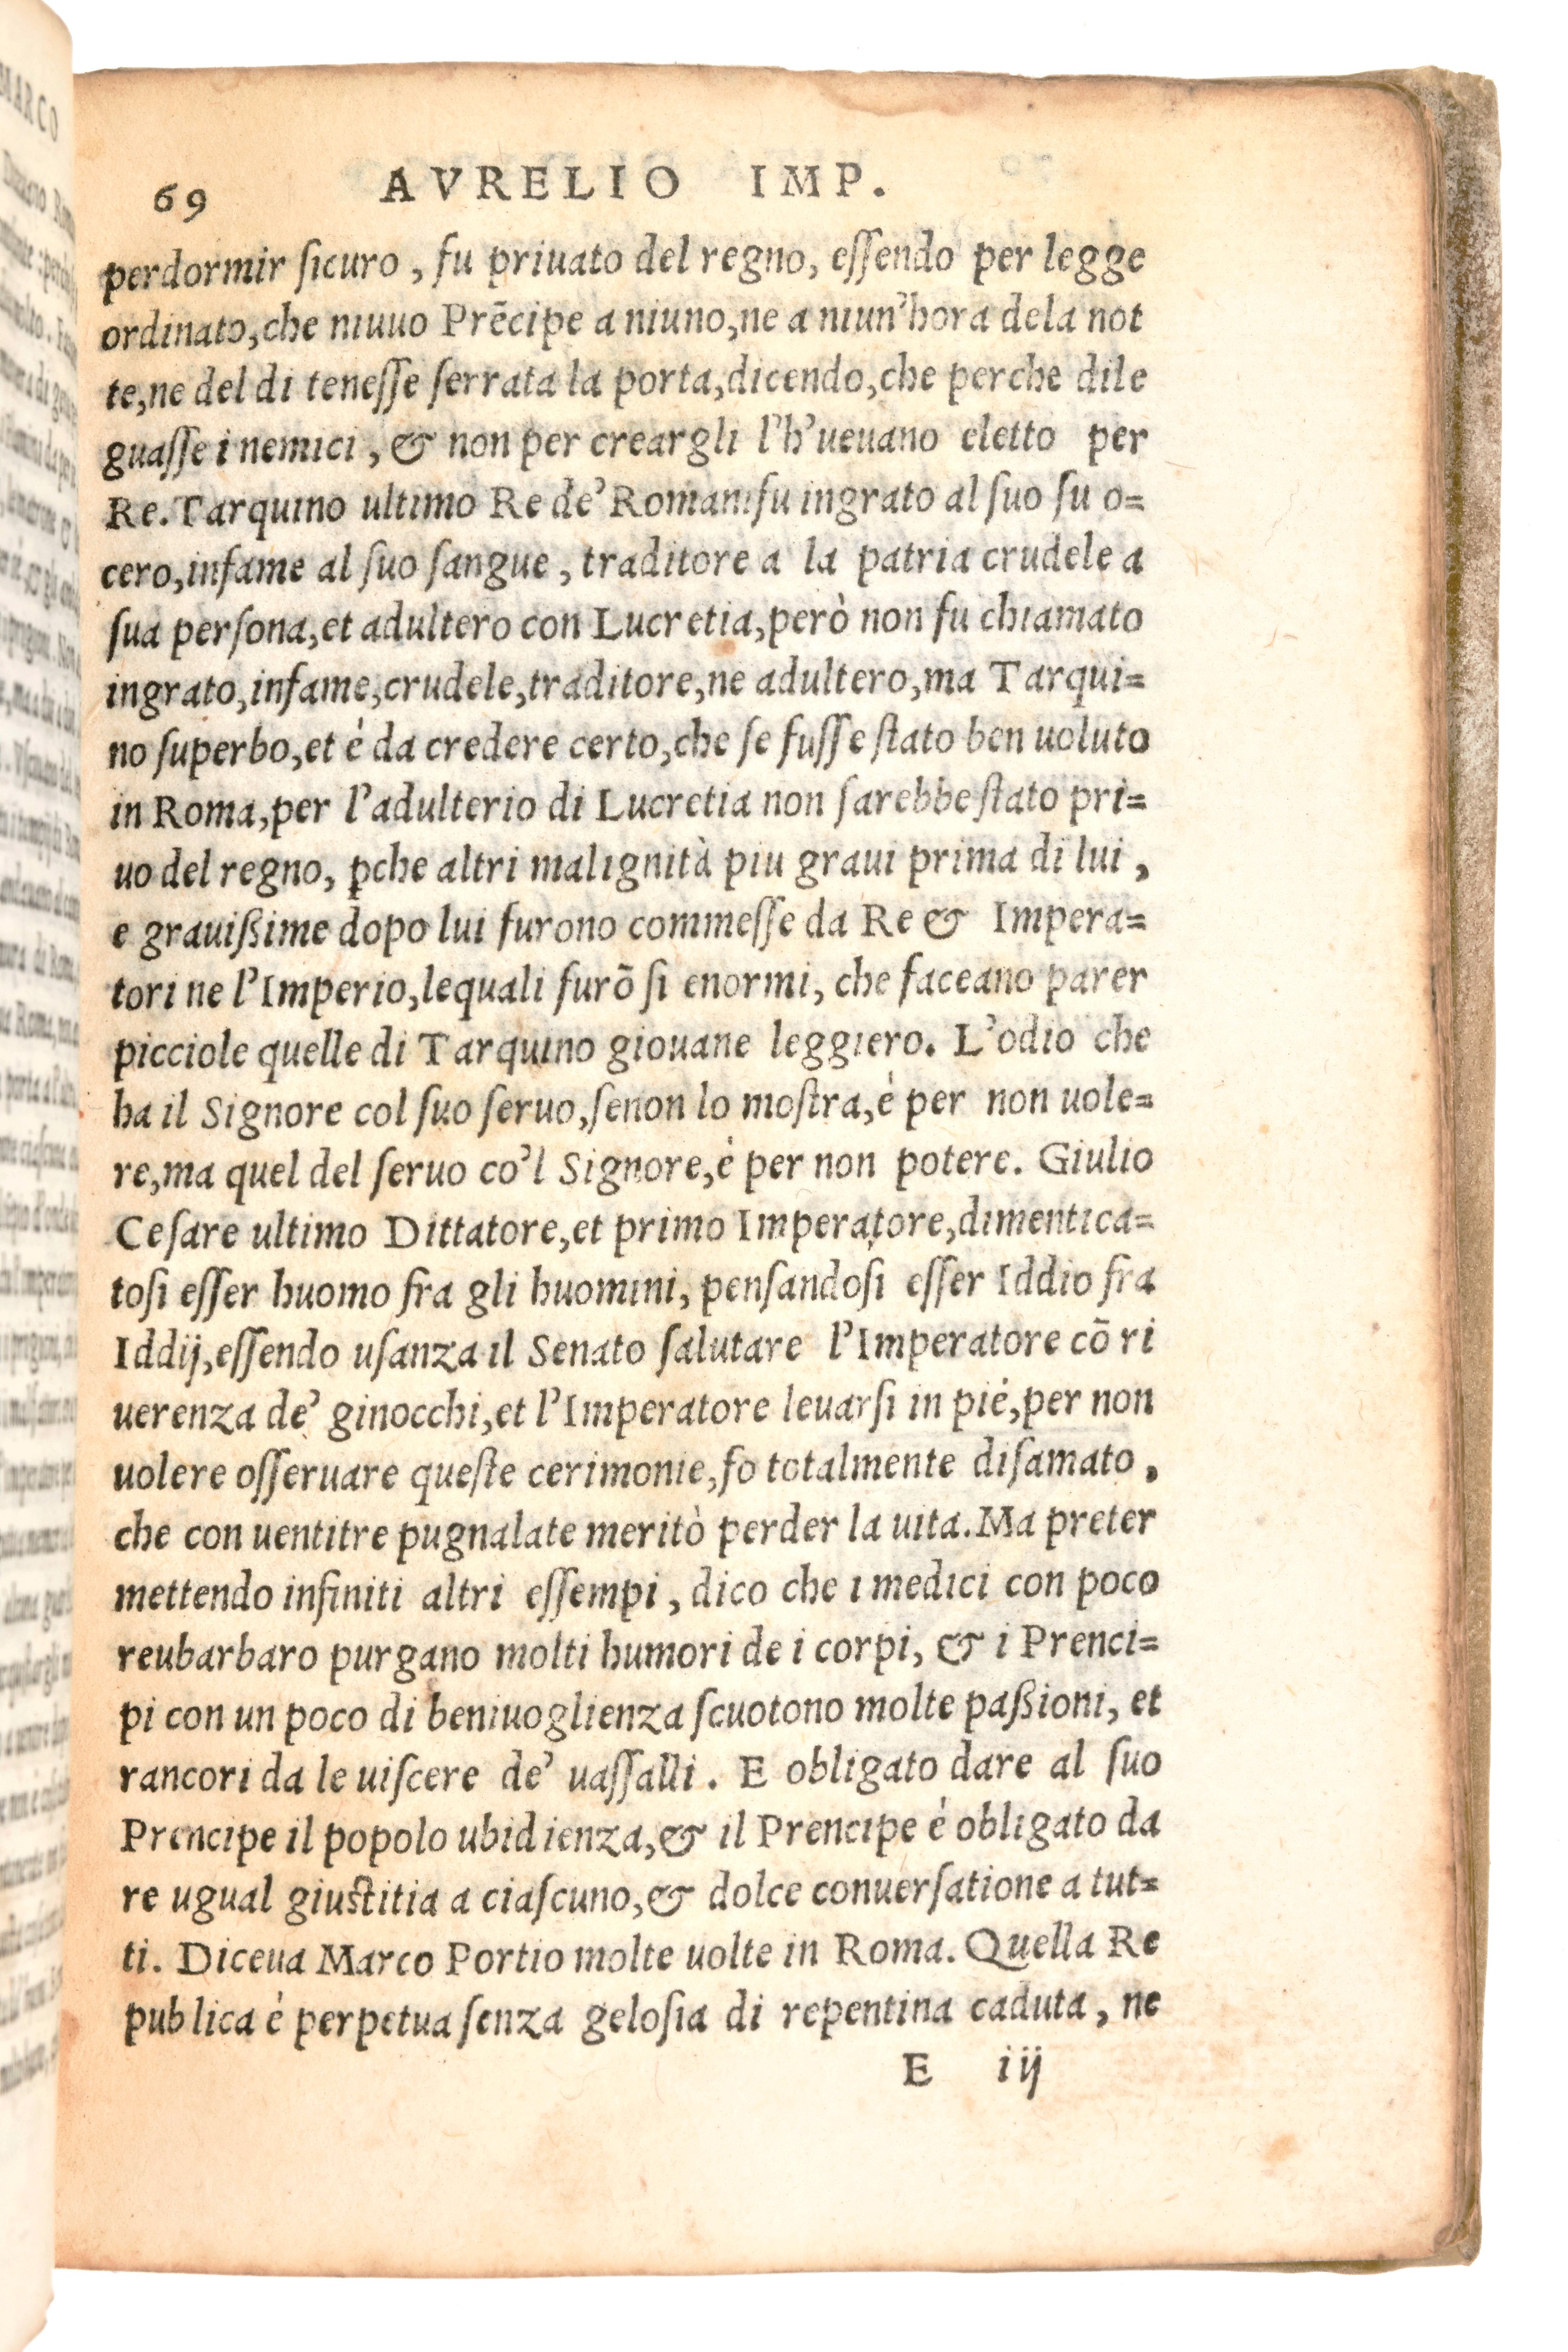 69 AVRELIO IMP.
perdormir ſicuro, fu priuato del regno, eſſendo per legge
ordinato, che niuuo Prēcipe a niuno, ne a niun'hora dela not
te, ne del di teneſſe ſerrata la porta, dicendo, che perche dile
guaſſe i nemici, & non per creargli l'h'ueuano eletto per
Re. Tarquino ultimo Re de' Romani fu ingrato al ſuo ſu o=
cero, infame al ſuo ſangue, traditore a la patria crudele a
ſua perſona, et adultero con Lucretia, però non fu chiamato
ingrato, infame, crudele, traditore, ne adultero, ma Tarqui=
no ſuperbo, et è da credere certo, che ſe fuſſe ſtato ben uoluto
in Roma, per l'adulterio di Lucretia non ſarebbe ſtato pri=
uo del regno, ꝑche altri malignità piu graui prima di lui,
e grauißime dopo lui furono commeſſe da Re & Impera=
tori ne l'Imperio, lequali furō ſi enormi, che faceano parer
picciole quelle di Tarquino giouane leggiero. L'odio che
ha il Signore col ſuo ſeruo, ſenon lo moſtra, è per non uole=
re, ma quel del ſeruo co'l Signore, è per non potere. Giulio
Ceſare ultimo Dittatore, et primo Imperatore, dimentica=
toſi eſſer huomo fra gli huomini, penſandoſi eſſer Iddio fra
Iddij, eſſendo uſanza il Senato ſalutare l'Imperatore cō ri
uerenza de' ginocchi, et l'Imperatore leuarſi in piè, per non
uolere oſſeruare queſte cerimonie, fo totalmente diſamato,
che con uentitre pugnalate meritò perder la uita. Ma preter
mettendo infiniti altri eſſempi, dico che i medici con poco
reubarbaro purgano molti humori de i corpi, & i Prenci=
pi con un poco di beniuoglienza ſcuotono molte paßioni, et
rancori da le uiſcere de' uaſſalli. E obligato dare al ſuo
Prencipe il popolo ubidienza, & il Prencipe è obligato da
re ugual giuſtitia a ciaſcuno, & dolce conuerſatione a tut=
ti. Diceua Marco Portio molte uolte in Roma. Quella Re
publica è perpetua ſenza geloſia di repentina caduta, ne
E iij